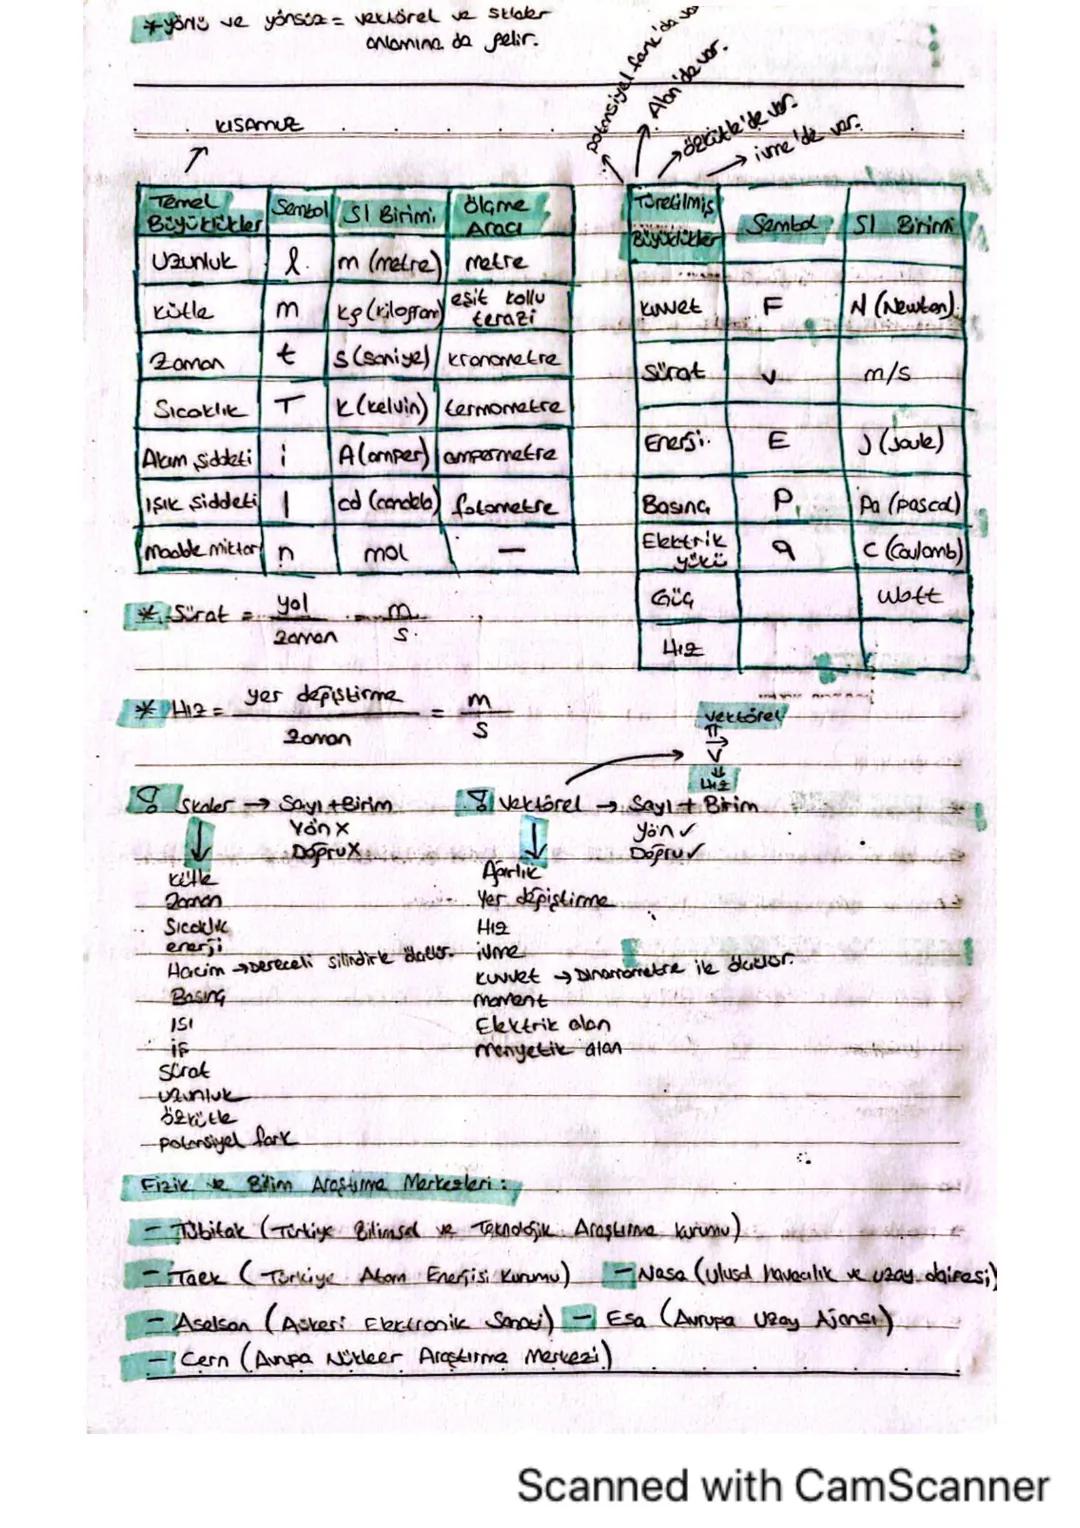 *yönü ve yönsüz = vektörel ve skaler
anlamına da gelir.
KISAMUZ
potansiyel fark'da var
Alan'da var.
özkütle'de var.
ivme'de var.
Temel Büyüklükler Sembol SI Birimi Ölçme Aracı
Uzunluk l m (metre) metre
Kütle m kg (kilogram) eşit kollu terazi
Zaman t s (saniye) kronometre
Sıcaklık T K (kelvin) termometre
Akım şiddeti i A (amper) ampermetre
Işık şiddeti I cd (candela) fotometre
madde miktarı n mol —
Türetilmiş Büyüklükler Sembol SI Birimi
Kuvvet F N (Newton)
Sürat v m/s
Enerji E J (Joule)
Basınç P Pa (pascal)
Elektrik yükü q C (Coulomb)
Güç Watt
Hız
* Sürat = yol / zaman = m / s
* Hız = yer değiştirme / zaman = m / s
vektörel
V
Hız
Skaler → Sayı + Birim
Yön X
Doğru X
Kütle
Zaman
Sıcaklık
enerji
Hacim → Dereceli silindirle ölçülür.
Basınç
ISI
iş
Sürat
uzunluk
özkütle
potansiyel fark
Vektörel → Sayı + Birim
Yön ✓
Doğru ✓
Ağırlık
Yer değiştirme
Hız
ivme
Kuvvet → Dinamometre ile ölçülür.
moment
Elektrik alan
menyetik alan
Fizik ve Bilim Araştırma Merkezleri:
- Tübitak (Türkiye Bilimsel ve Teknolojik Araştırma Kurumu)
- Taek (Türkiye Atom Enerjisi Kurumu) - Nasa (Ulusal havacılık ve uzay dairesi)
- Aselsan (Askeri Elektronik Sanayi) - Esa (Avrupa Uzay Ajansı)
- Cern (Avrupa Nükleer Araştırma Merkezi)
Scanned with CamScanner